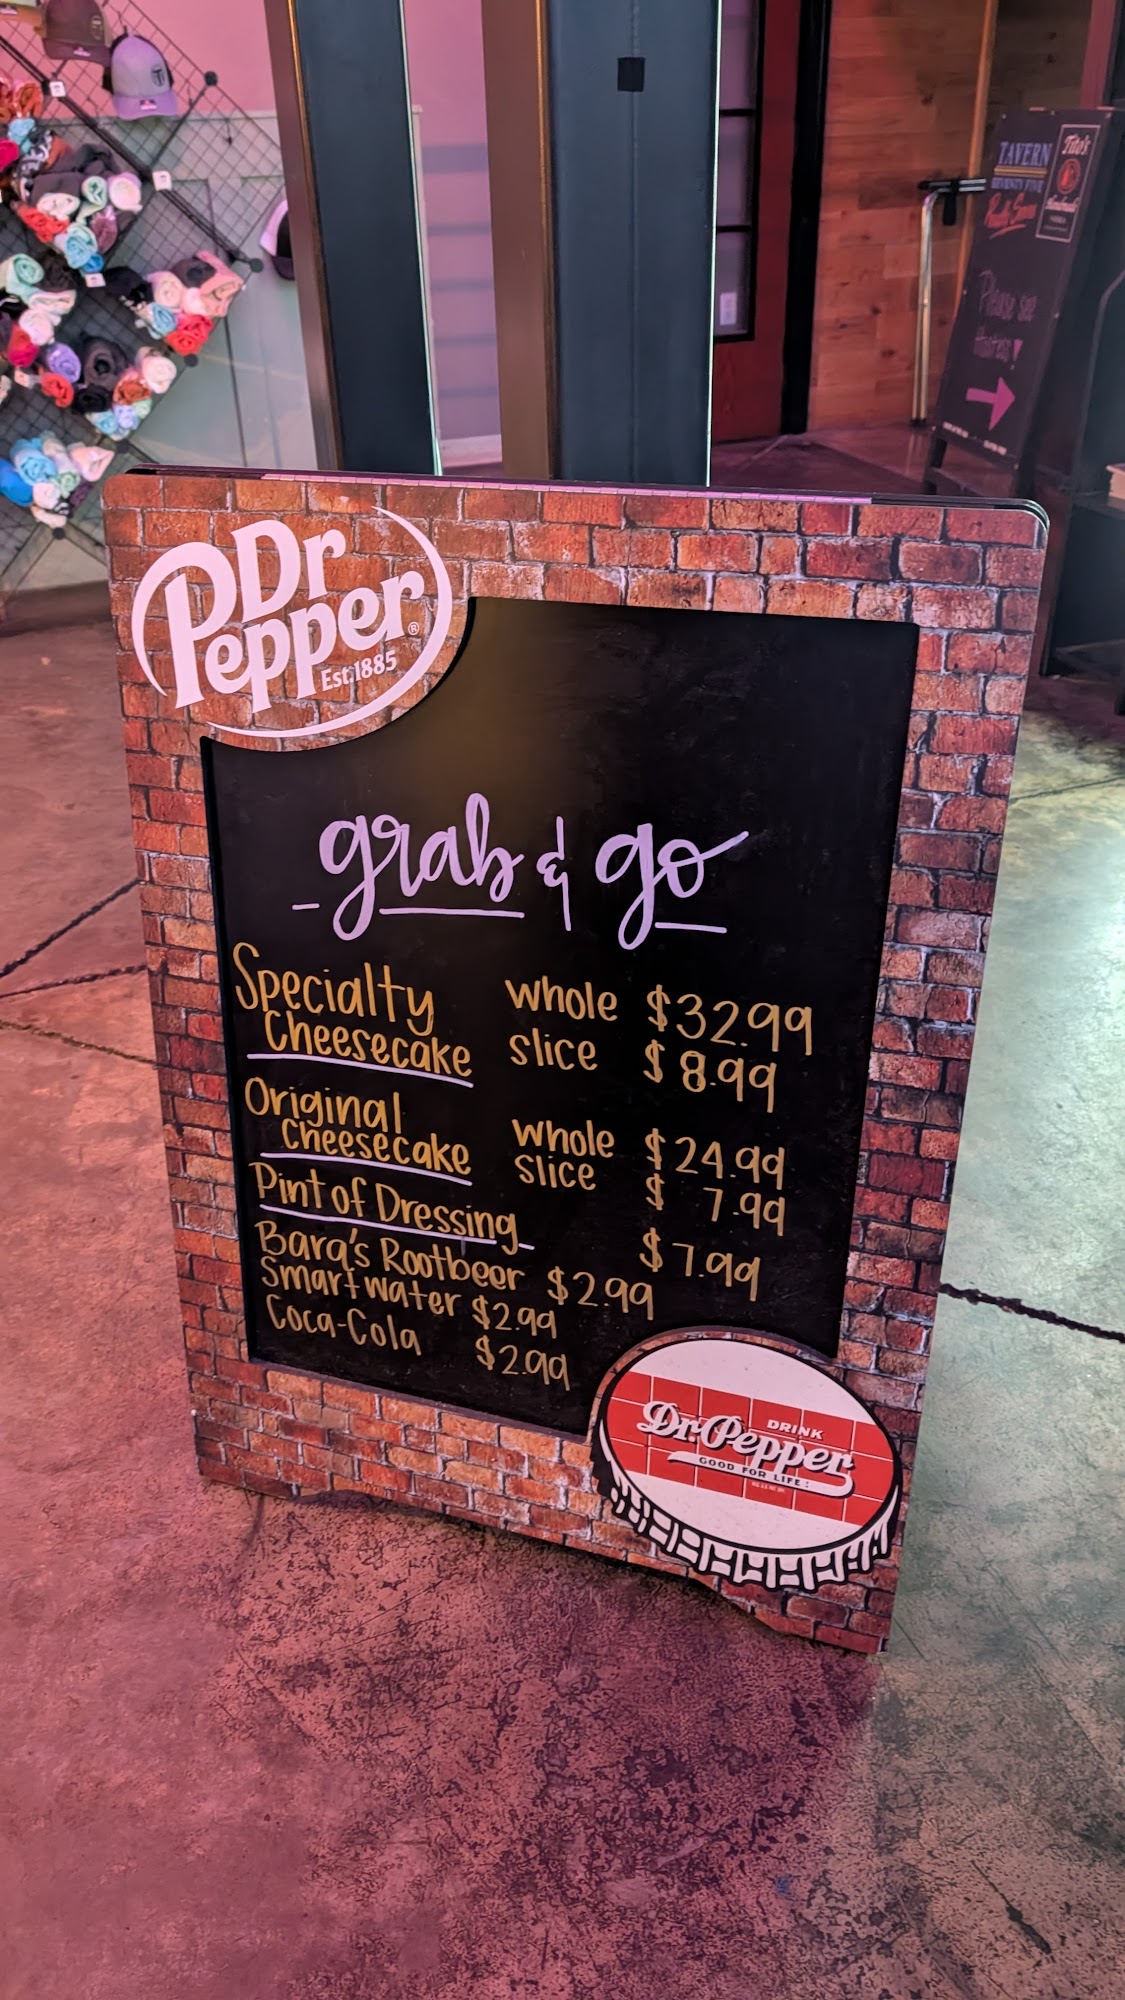 TAVERN
SEVENTY FIVE
Tito's
Handmade
Please see
Hostess!
Dr
Pepper®
Est.1885
grab & go
Specialty
Cheesecake
whole $32.99
slice $8.99
Original
Cheesecake
whole $24.99
slice $7.99
Pint of Dressing $7.99
Barq's Rootbeer $2.99
Smart water $2.99
Coca-Cola $2.99
DRINK
Dr.Pepper
GOOD FOR LIFE!